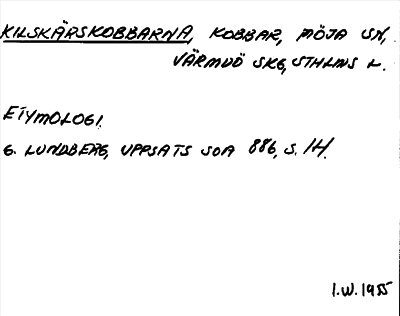 KILSKÄRSKOBBARNA, KOBBAR, MÖJA SN,
VÄRMDÖ SKG, STHLMS L.
ETYMOLOGI.
G. LUNDBERG, UPPSATS SOA 886, S. 14.
I.W. 1955